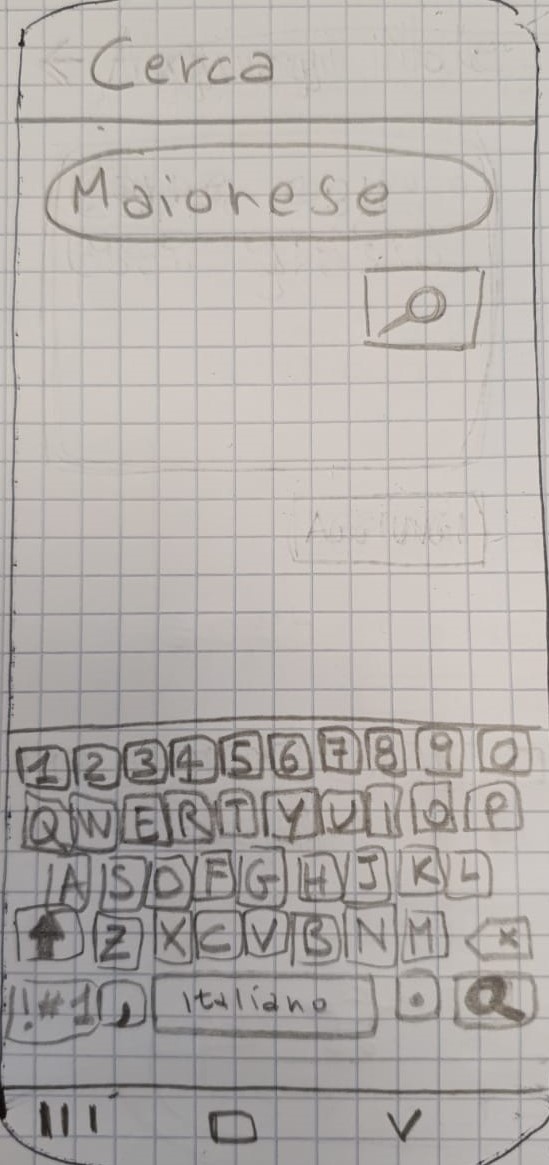 Cerca
Maionese
1 2 3 4 5 6 7 8 9 0
Q W E R T Y U I O P
A S D F G H J K L
Z X C V B N M X
!#1 , Italiano .